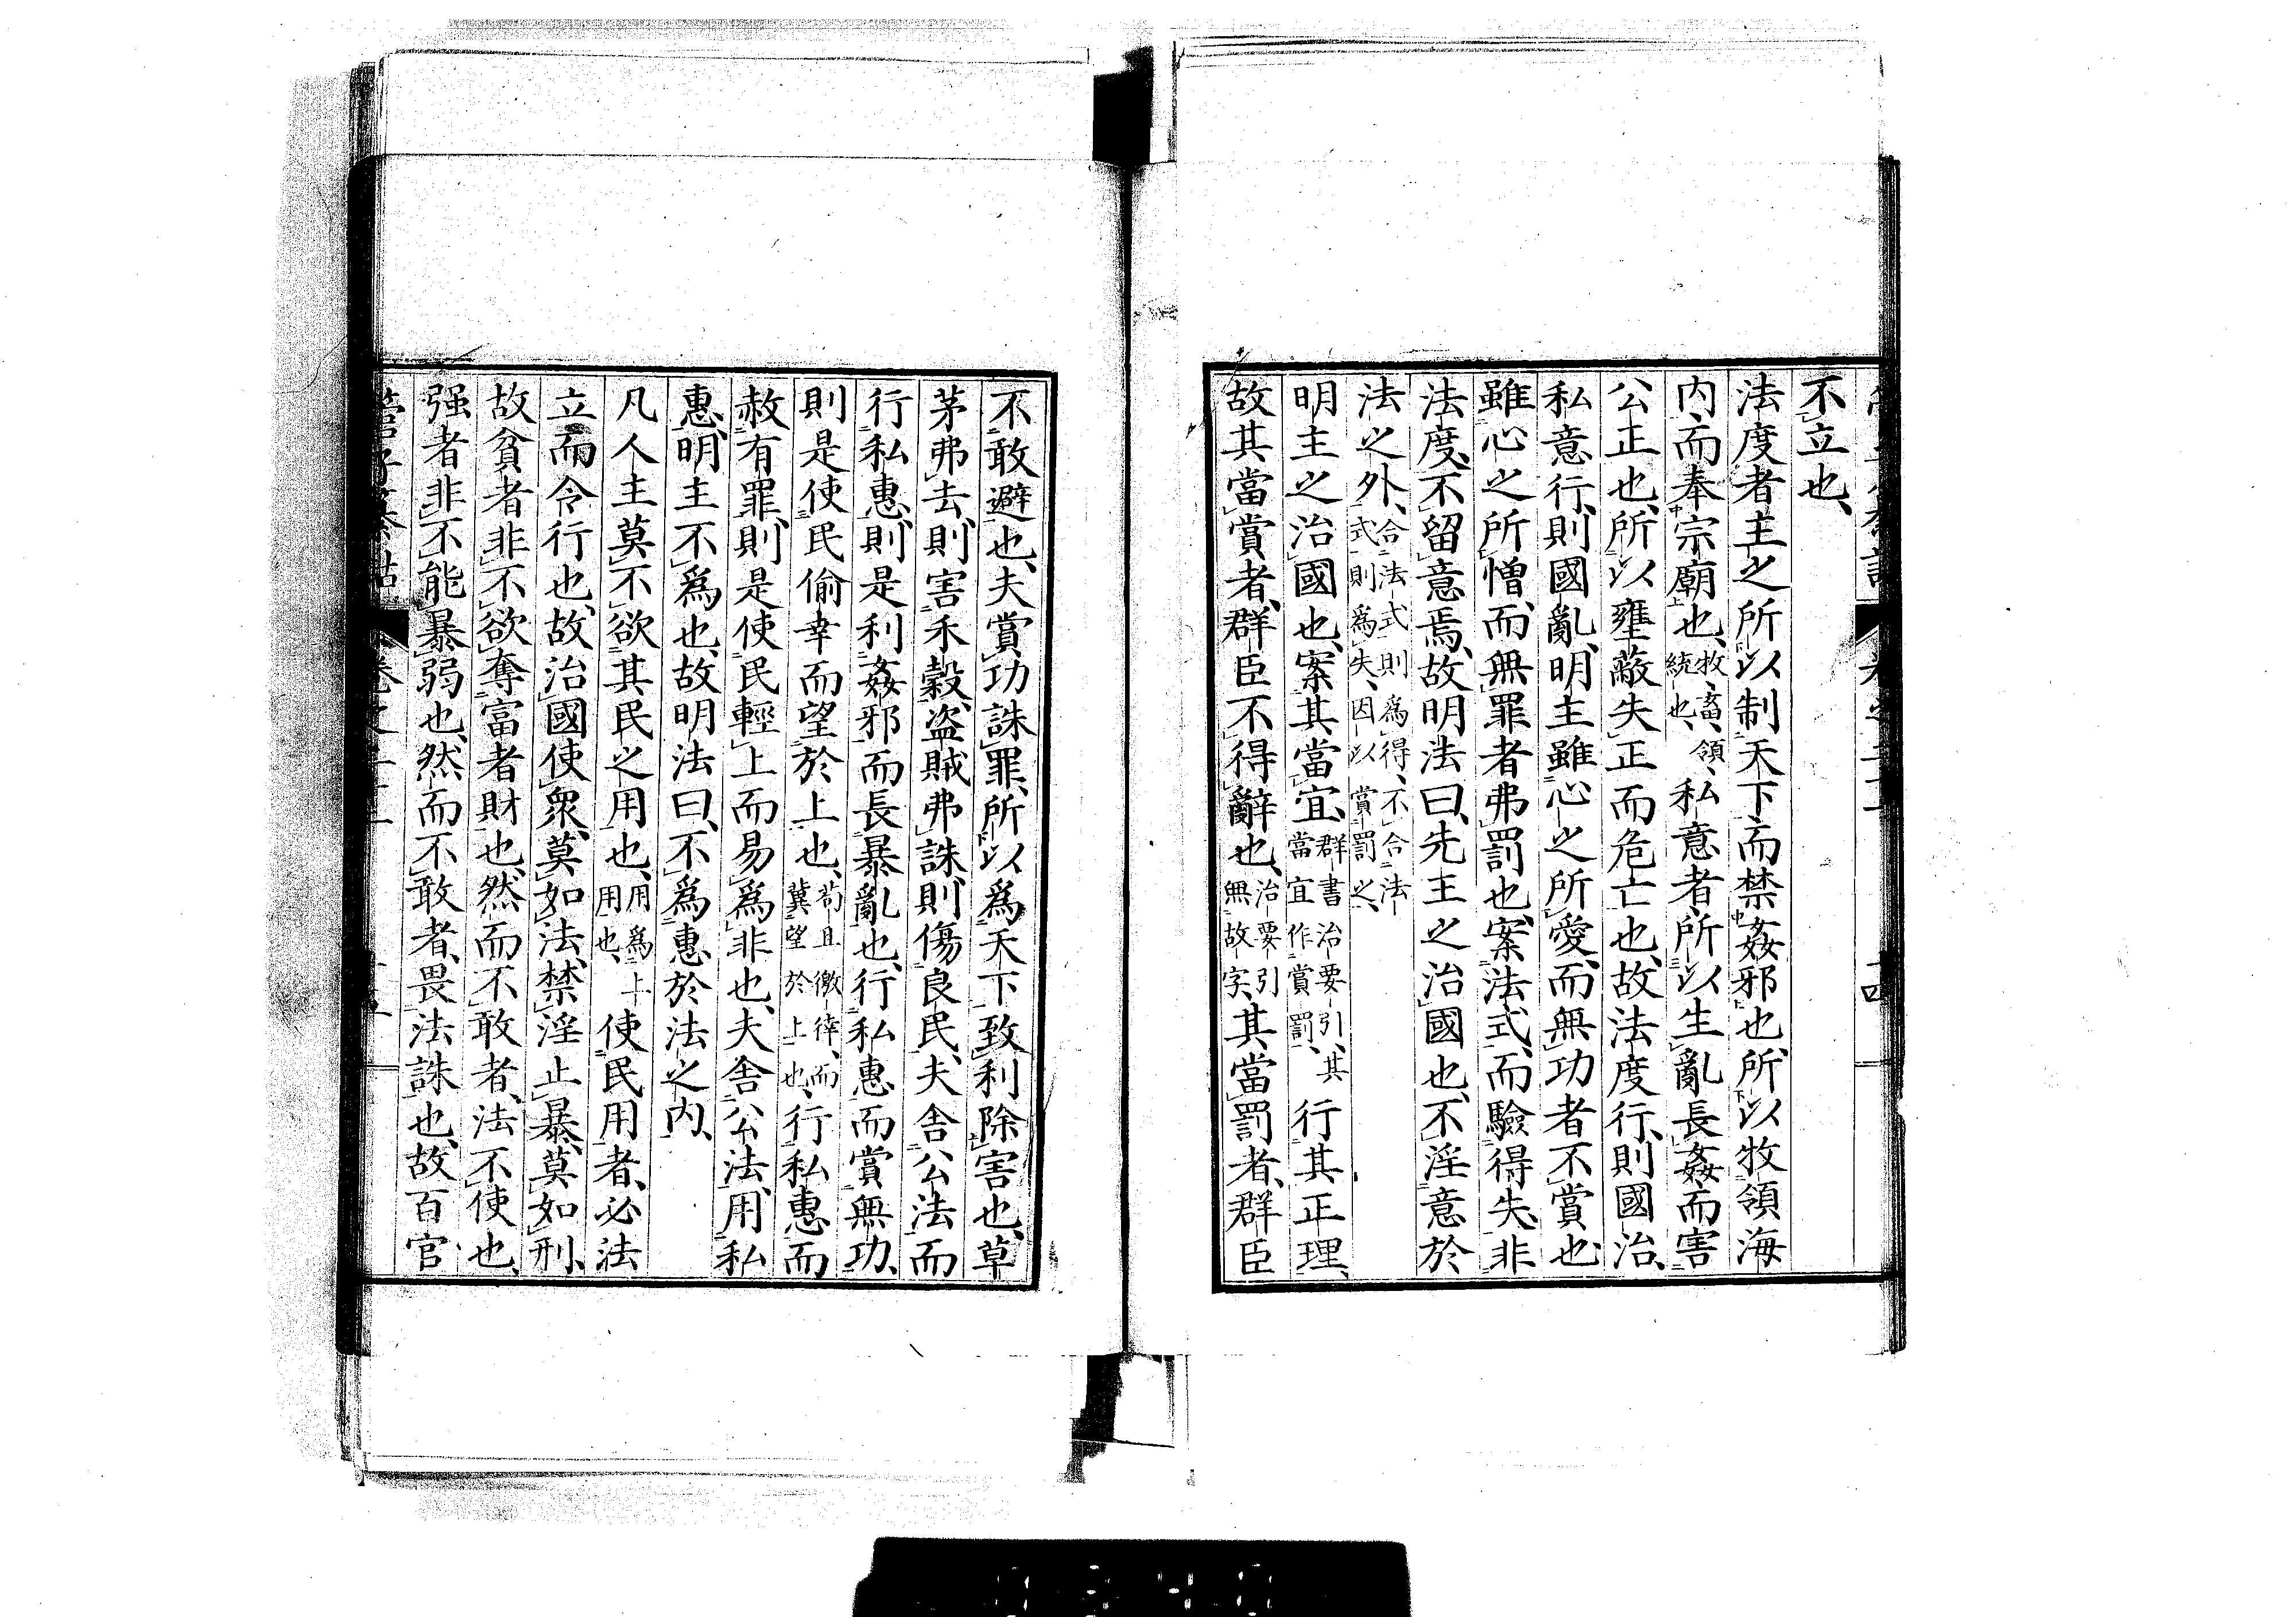 不立也、
法度者、主之所以制天下而禁姦邪也、所以牧領海
內、而奉宗廟也、牧、畜、領、統也、私意者、所以生亂長姦、而害
公正也、所以壅蔽失正而危亡也、故法度行、則國治、
私意行、則國亂、明主雖心之所愛、而無功者不賞也、
雖心之所憎、而無罪者弗罰也、案法式、而驗得失、非
法度、不留意焉、故明法曰、先王之治國也、不淫意於
法之外、合法式則爲得、不合法式則爲失、因以賞罰之、
明主之治國也、案其當宜、群書治要引、其當宜作賞罰、行其正理、
故其當賞者、群臣不得辭也、治要引無故字、其當罰者、群臣
不敢避也、夫賞功誅罪、所以爲天下致利除害也、草
茅弗去、則害禾穀、盜賊弗誅、則傷良民、夫舍公法而
行私惠、則是利姦邪而長暴亂也、行私惠而賞無功、
則是使民偷幸而望於上也、苟且徼倖、而冀望於上也、行私惠而
赦有罪、則是使民輕上而易爲非也、夫舍公法、用私
惠、明主不爲也、故明法曰、不爲惠於法之內、
凡人主莫不欲其民之用也、用爲上用也、使民用者、必法
立而令行也、故治國使衆、莫如法、禁淫止暴、莫如刑、
故貧者非不欲奪富者財也、然而不敢者、法不使也、
强者非不能暴弱也、然而不敢者、畏法誅也、故百官